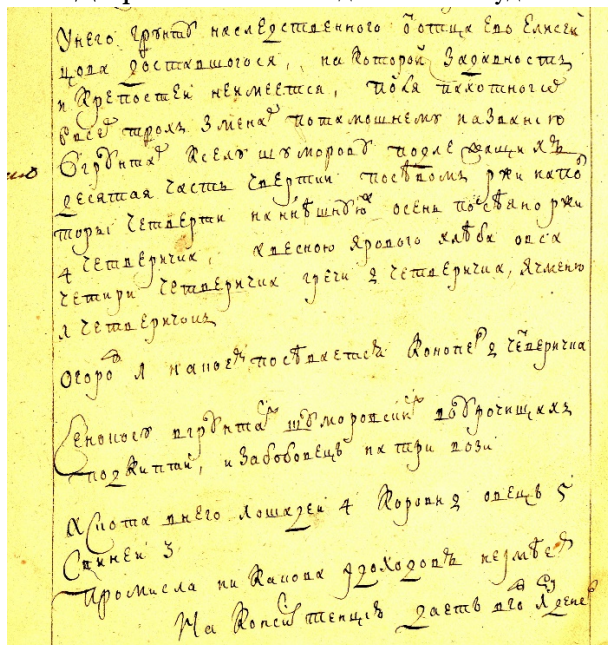 Унего грунтъ наследственного ѿ отца Его Елисей
цова доставшогося, на которой задавностъ
и крепостей неимеется, поля пахотного
всее трохъ змена потамошнему названию
ѿгрунта Кселу шуморову подле
десятая часть четверти посѣвомъ ржи напо
торы четверти нанѣшную осень посѣяно ржи
4 четверичка, квесною ярового хлѣба овса
четири четверичка гречи 2 четверичка, ячменю
1 четверичокъ
огоро 1 наное посѣвается конопе 2 четверичка
Сенокосу вгрунта шуморовски воурочищахъ
подкиптий, и забобовецъ на три вози
Скота внего лошадей 4 Коровъ 2 овецъ 5
Свиней 3
Промисла ни какова идоходовъ неімѣе
На Консистенцію даетъ вго 1 дене